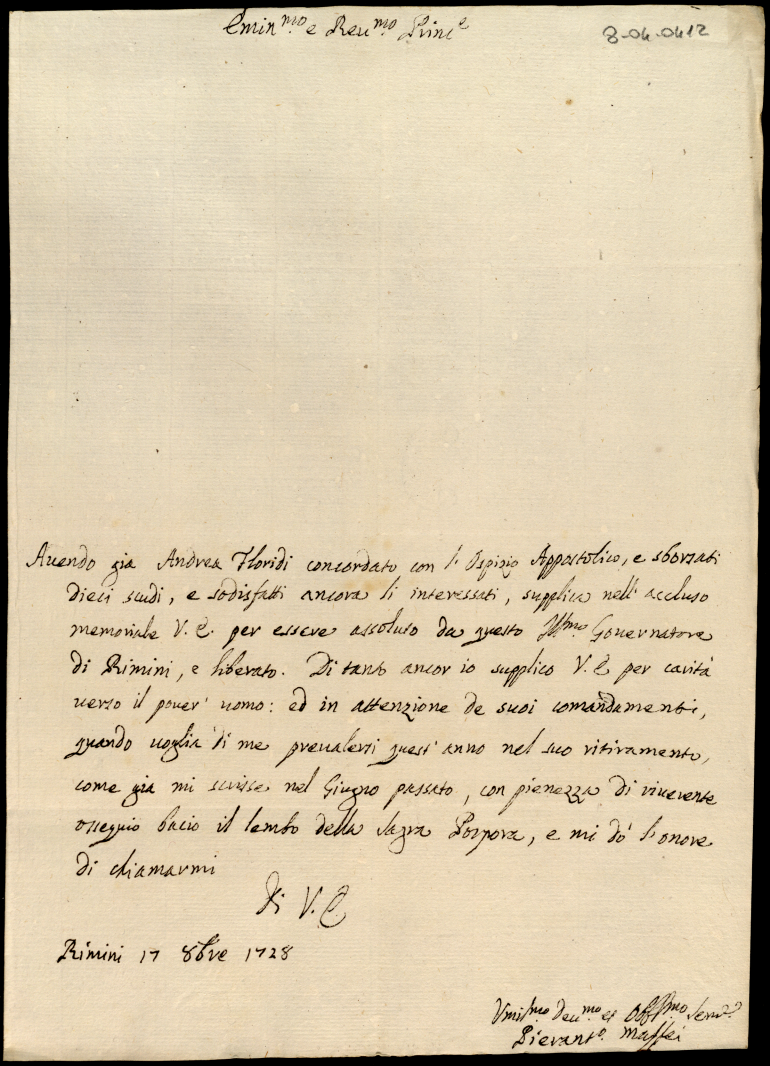 Emin.mo e Reu.mo Princ.e
8-04-0412
Auendo gia Andrea Floridi concordato con l'Ospizio Appostolico, e sborzati
dieci scudi, e sodisfatti ancora li interessati, supplica nell'accluso
memoriale V. E. per essere assoluto da questo Ill.mo Gouernatore
di Rimini, e liberato. Di tanto ancor io supplico V. E per carità
uerso il pouer' uomo: ed in attenzione de suoi comandamenti,
quando uoglia di me preualersi quest'anno nel suo ritiramento,
come gia mi scrisse nel Giugno passato, con pienezza di riuerente
osseguio bacio il lembo della Sagra Porpora, e mi dò l'onore
di chiamarmi
Di V. E
Rimini 17 8bre 1728
Vmil.mo Deu.mo et Obb.mo Seru.e
Pierant.o Maffei